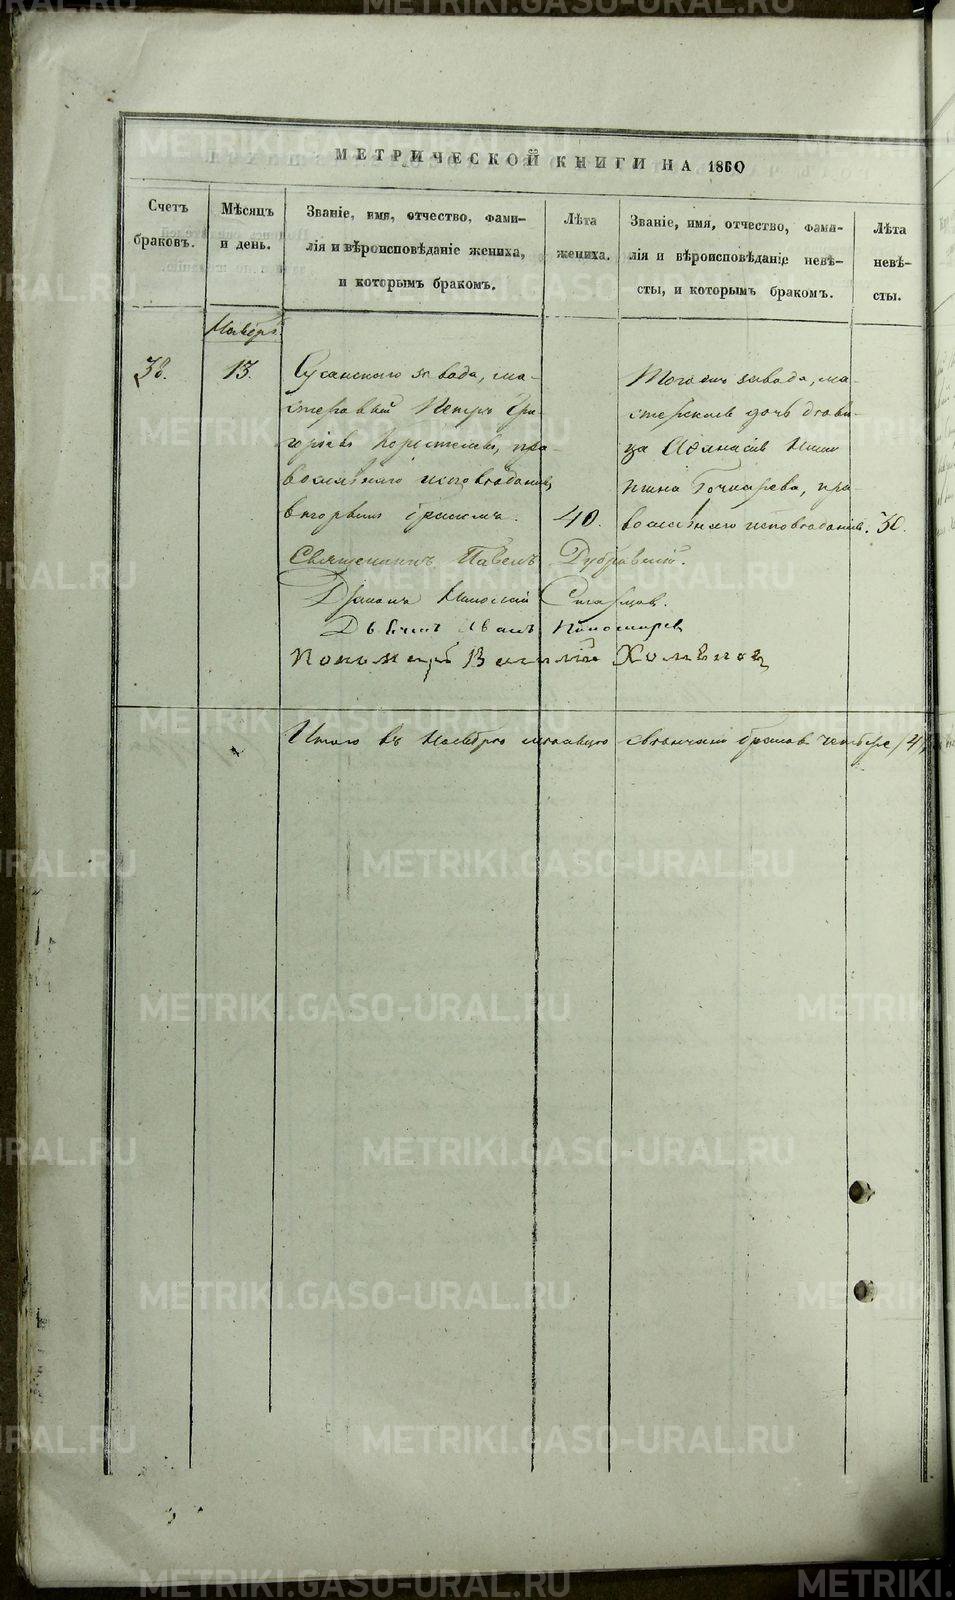 МЕТРИЧЕСКОЙ КНИГИ НА 1860
Счетъ
браковъ.
Мѣсяцъ
и день.
Званіе, имя, отчество, фами-
лія и вѣроисповѣданіе жениха,
и которымъ бракомъ.
Лѣта
жениха.
Званіе, имя, отчество, фами-
лія и вѣроисповѣданіе невѣ-
сты, и которымъ бракомъ.
Лѣта
невѣ-
сты.
Ноябрь
38.
13.
Сусанскаго завода, ма-
стеровый Петръ Гри-
горіевъ Коростелевъ, пра-
вославнаго исповѣданія,
вторымъ бракомъ.
40.
Того жъ завода, ма-
стерская дочь дѣви-
ца Аѳанасія
Гончарова, пра-
вославнаго исповѣданія.
30.
Священникъ Павелъ Дубровскій.
Діаконъ Николай Старцов.
Дьячекъ Иванъ Пономаревъ
Пономарь Василій
Итого въ Ноябрѣ мѣсяцѣ свѣнчано браковъ четыре /4/
METRIKI.GASO-URAL.RU